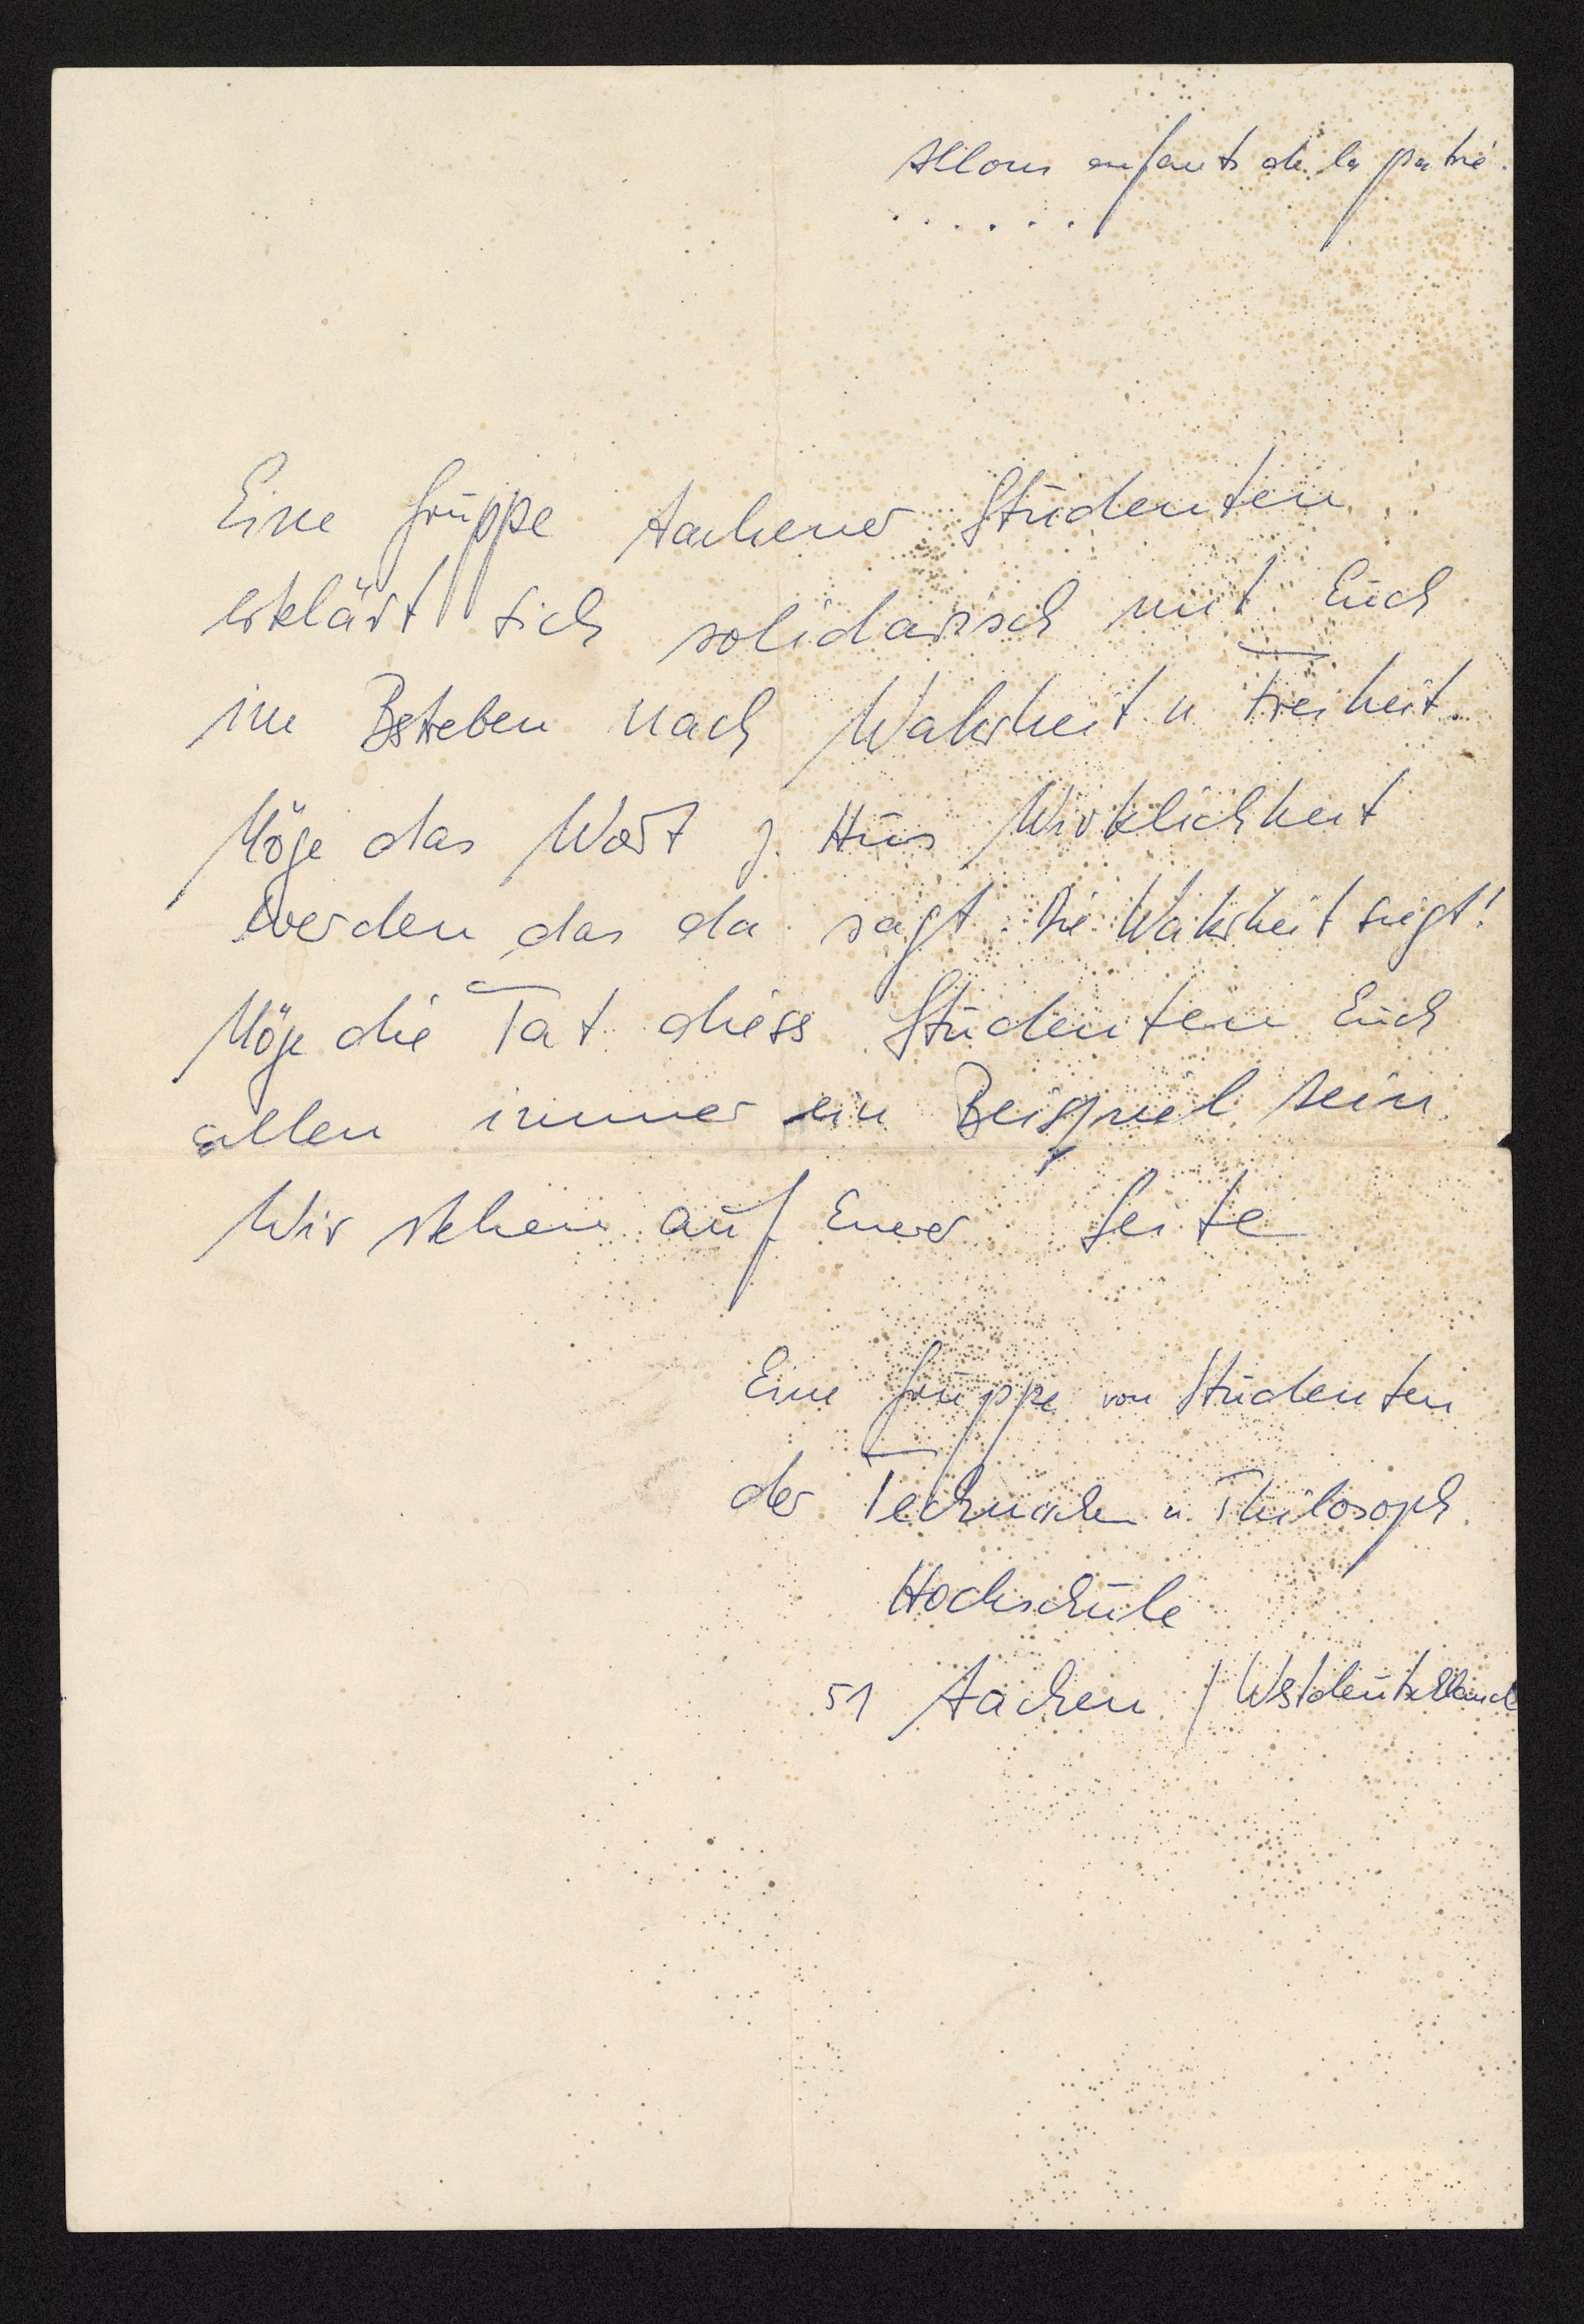 Allons enfants de la patrie.
. . . . . .
Eine Gruppe Aachener Studenten
erklärt sich solidarisch mit Euch
im Bestreben nach Wahrheit u Freiheit.
Möge das Wort J. Hus Wirklichkeit
werden das da sagt: Die Wahrheit siegt!
Möge die Tat dieses Studenten Euch
allen immer ein Beispiel sein.
Wir stehen auf Euerer Seite
Eine Gruppe von Studenten
der Technischen u. Philosoph.
Hochschule
51 Aachen / Westdeutschland